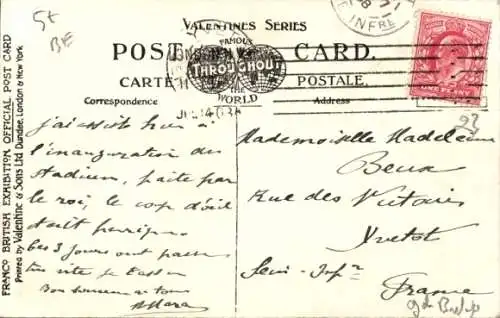 VALENTINES SERIES
FAMOUS
THROUGHOUT
THE
WORLD
POST CARD.
CARTE POSTALE.
Correspondence
Address
FRANCO BRITISH EXHIBITION OFFICIAL POST CARD
Printed by Valentine & Sons Ltd Dundee, London & New York
JUL 14 08
INFRE
5t
j'ai assisté hier à
l'inauguration du
Stadium, faite par
le roi, le coup d'œil
était
Les 3 jours ont passé
très vite
Bon à tous
Mademoiselle Madeleine
Beux
Rue des Victoires
Yvetot
Sein-Infre
France